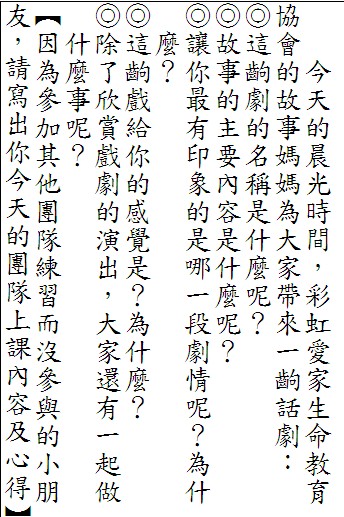 今天的晨光時間，彩虹愛家生命教育
協會的故事媽媽為大家帶來一齣話劇：
◎這齣劇的名稱是什麼呢？
◎故事的主要內容是什麼呢？
◎讓你最有印象的是哪一段劇情呢？為什
麼？
◎這齣戲給你的感覺是？為什麼？
◎除了欣賞戲劇的演出，大家還有一起做
什麼事呢？
【因為參加其他團隊練習而沒參與的小朋
友，請寫出你今天的團隊上課內容及心得】